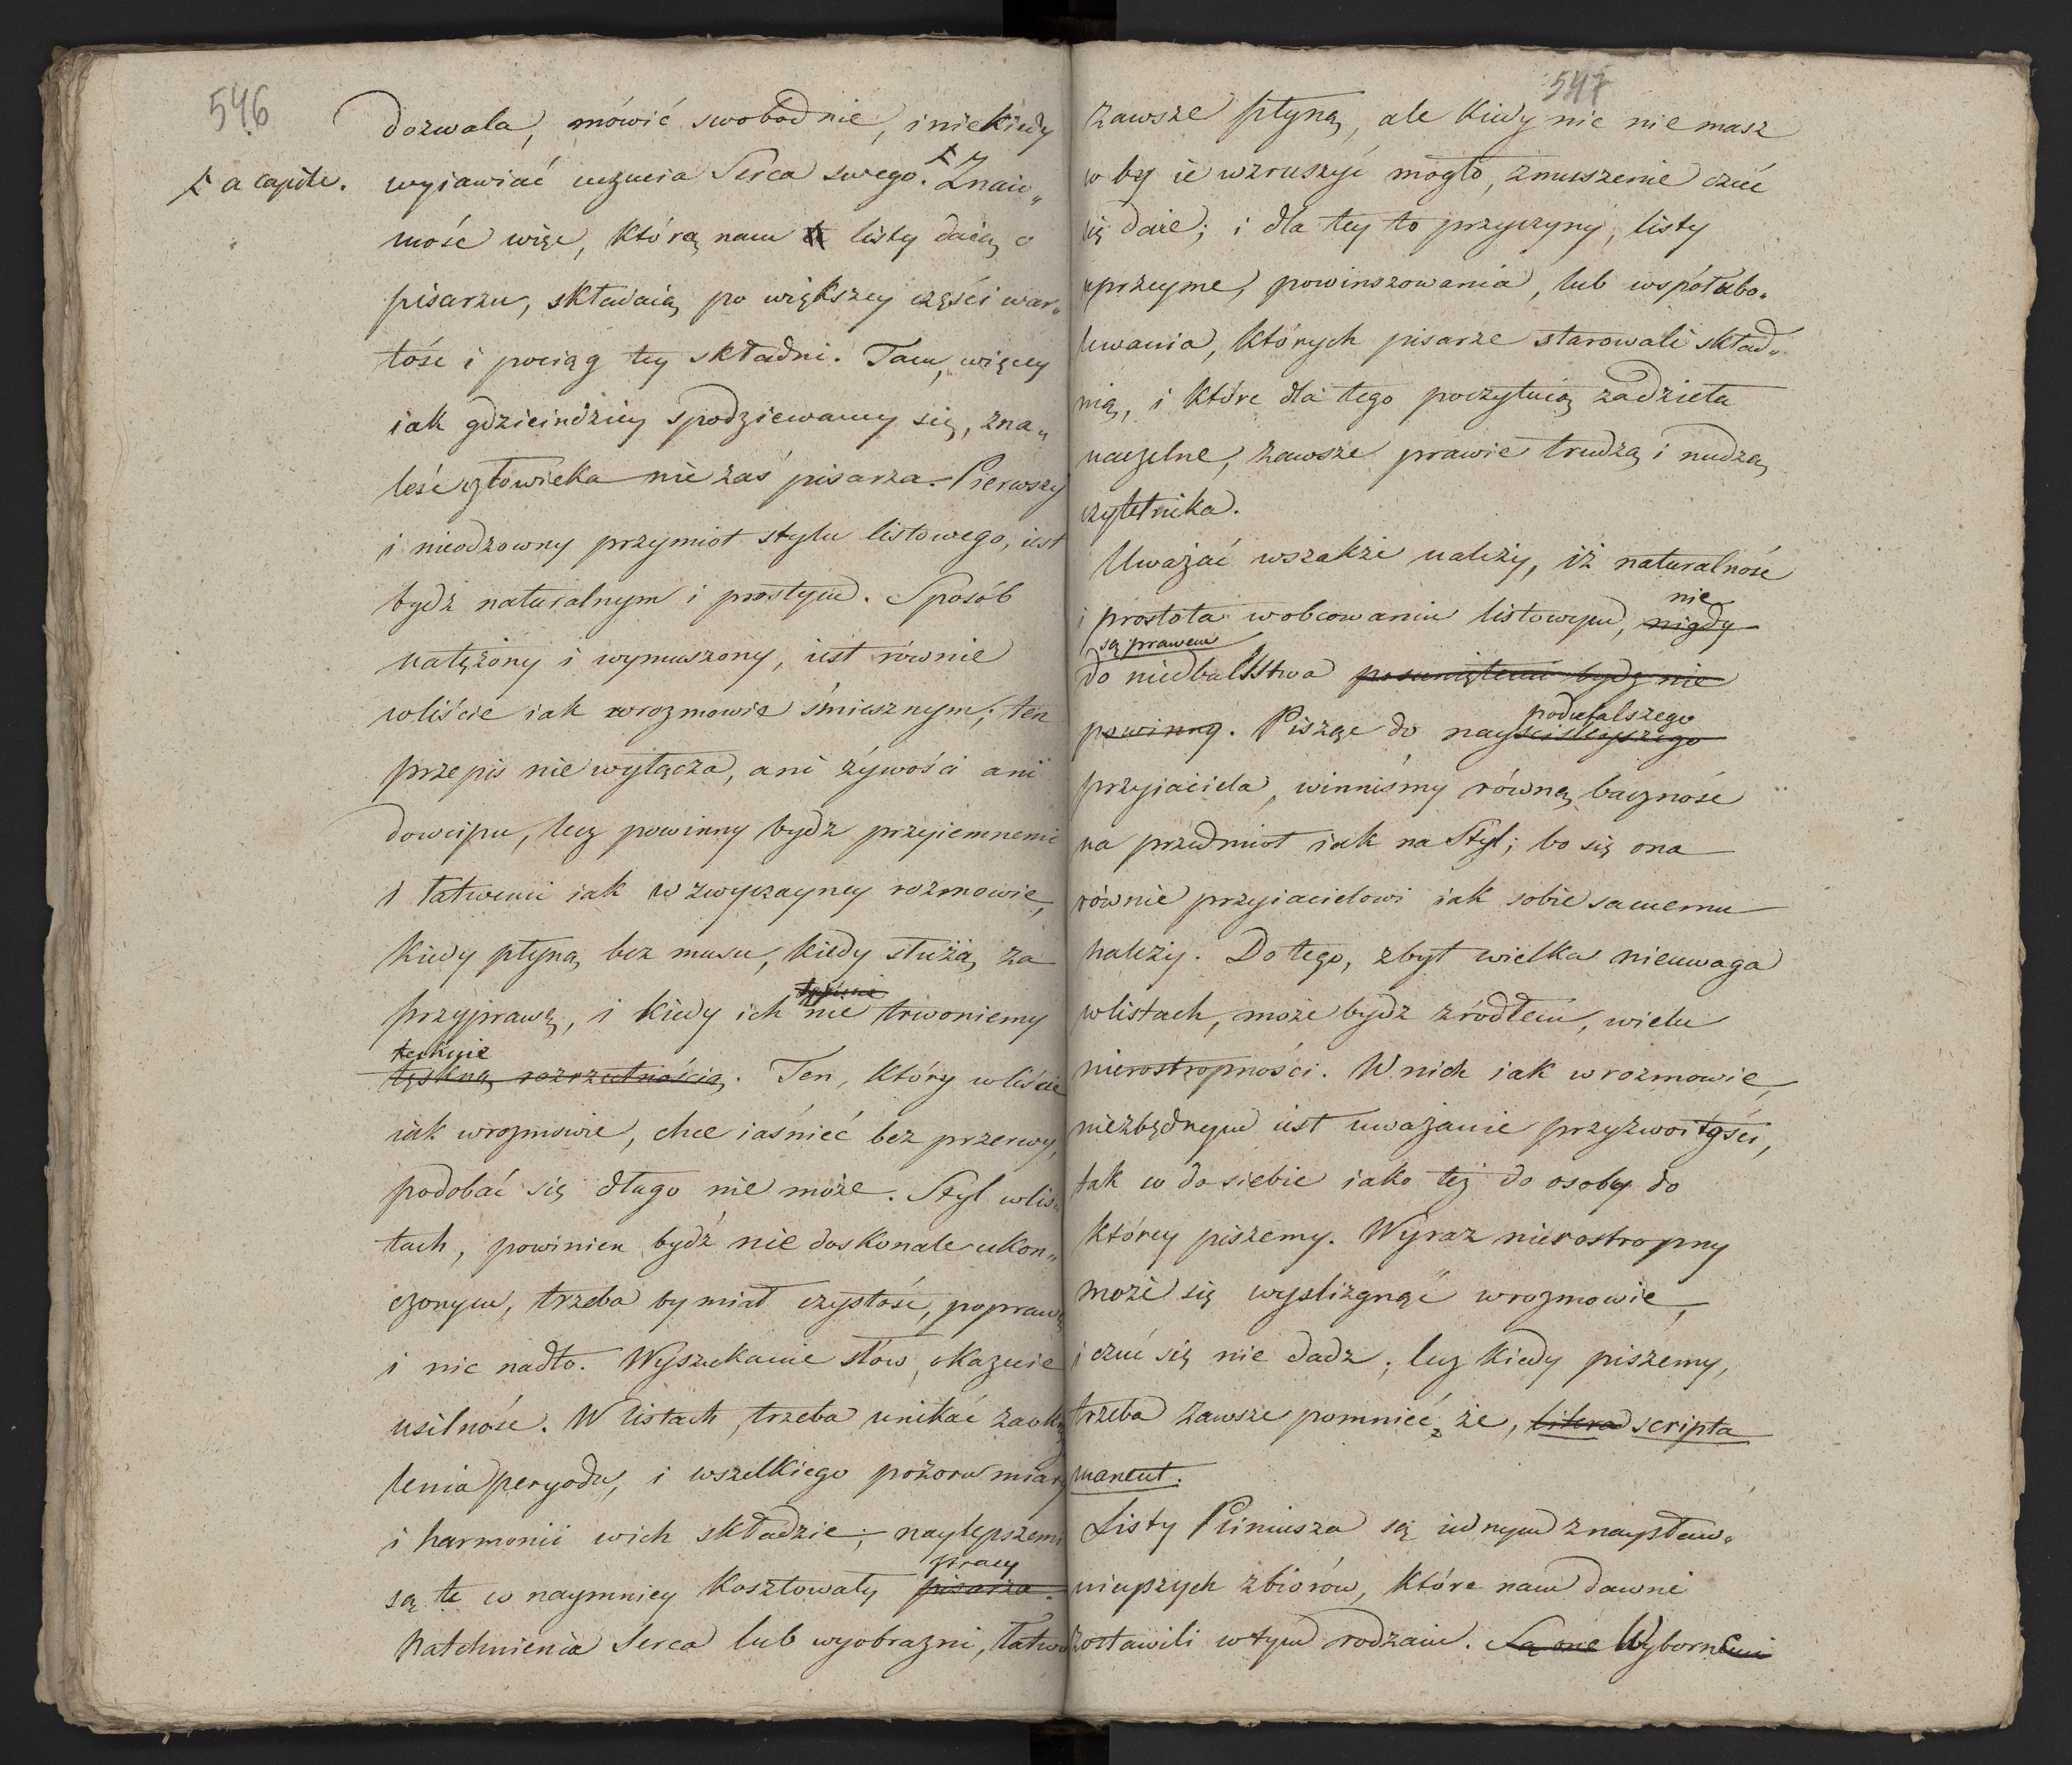 546
dozwala, mówić swobodnie, i niekiedy
a capite. wyiawiać uczucia Serca swego. Znaio„
mość więc, którą nam listy daią o
pisarzu, składaią po większey części war„
tość i pociąg tey składni. Tam, więcey
iak gdzieindziey spodziewamy się, zna„
leść człowieka nie zaś pisarza. Pierwszy
i nieodzowny przymiot stylu listowego, iest
bydź naturalnym i prostym. Sposób
natężony i wymuszony, iest równie
wliście iak wrozmowie śmiesznym; ten
przepis nie wyłącza, ani żywości ani
dowcipu, lecz powinny bydź przyiemnemi
i łatwemi iak w zwyczayney rozmowie,
kiedy płyną bez musu, kiedy służą za
przyprawę, i kiedy ich nie trwoniemy
tęsknie
tęskną rozrzutnością. Ten, który wliście
iak wrozmowie, chce iaśnieć bez przerwy,
podobać się długo nie może. Styl wlis„
tach, powinien bydź nie doskonale ukoń„
czonym, trzeba by miał czystość, poprawę
i nic nadto. Wyszukanie słów, okazuie
usilność. W listach, trzeba unikać zaokrą
lenia peryodu, i wszelkiego pozoru miary
i harmonii wich składzie; naylepszemi
pracy
są te co naymniey kosztowały pisarza.
Natchnienia Serca lub wyobraźni, łatwo
547
zawsze płyną, ale kiedy nic nie masz
co by ie wzruszyć mogło, zmuszenie czuć
się daie; i dla tey to przyczyny, listy
uprzeyme, powinszowania, lub współubo„
lewania, których pisarze starowali skład„
nią, i które dla tego poczytuią zadzieła
naczelne, zawsze prawie trudzą i nudzą
czytelnika.
Uważać wszakże należy, iż naturalność
nie
i prostota wobcowaniu listowym, nigdy
są prawem
do niedbalstwa posuniętemi bydź nie
poufalszego
powinny. Pisząc do nayściśleyszego
przyiaciela, winniśmy równą baczność
na przedmiot iak na Styl; bo się ona
równie przyiacielowi iak sobie samemu
należy. Do tego, zbyt wielka nieuwaga
wlistach, może bydź źródłem, wielu
nierostropności. W nich iak w rozmowie,
niezbędnym iest uważanie przyzwoitości,
tak co do siebie iako też do osoby do
którey piszemy. Wyraz nierostropny
może się wyslizgnąć wrozmowie,
i czuć się nie dadz; lecz kiedy piszemy,
trzeba zawsze pomnieć, że, litera scripta
manent.
Listy Pliniusza są iednym znaysław„
nieyszych zbiorów, które nam dawni
zostawili wtym rodzaiu. Są one Wybornemi